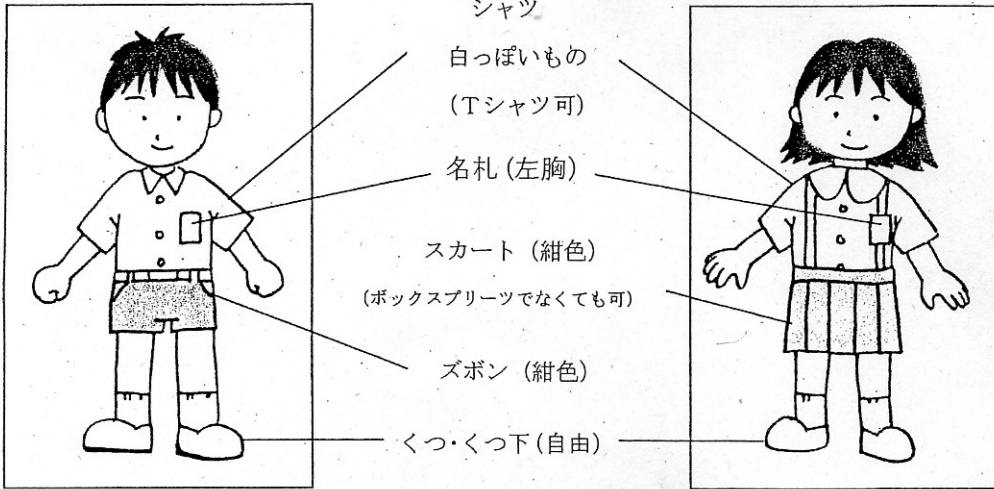 シャツ
白っぽいもの
(Tシャツ可)
名札(左胸)
スカート(紺色)
(ボックスプリーツでなくても可)
ズボン(紺色)
くつ・くつ下(自由)